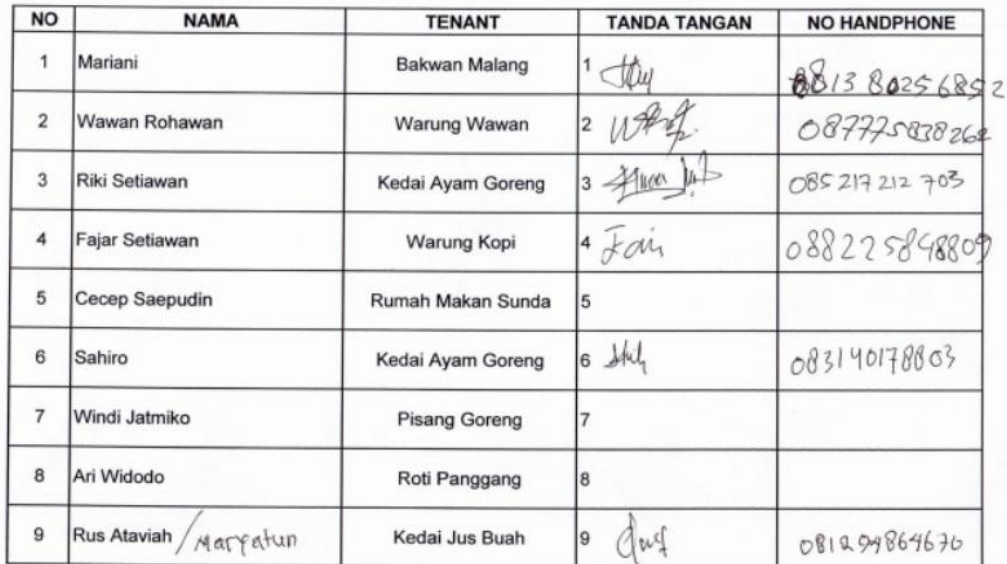 NO NAMA TENANT TANDA TANGAN NO HANDPHONE
1 Mariani Bakwan Malang 1 081380256852
2 Wawan Rohawan Warung Wawan 2 087775838262
3 Riki Setiawan Kedai Ayam Goreng 3 085217212703
4 Fajar Setiawan Warung Kopi 4 088225848809
5 Cecep Saepudin Rumah Makan Sunda 5
6 Sahiro Kedai Ayam Goreng 6 083140178803
7 Windi Jatmiko Pisang Goreng 7
8 Ari Widodo Roti Panggang 8
9 Rus Ataviah / Maryatun Kedai Jus Buah 9 081294864670